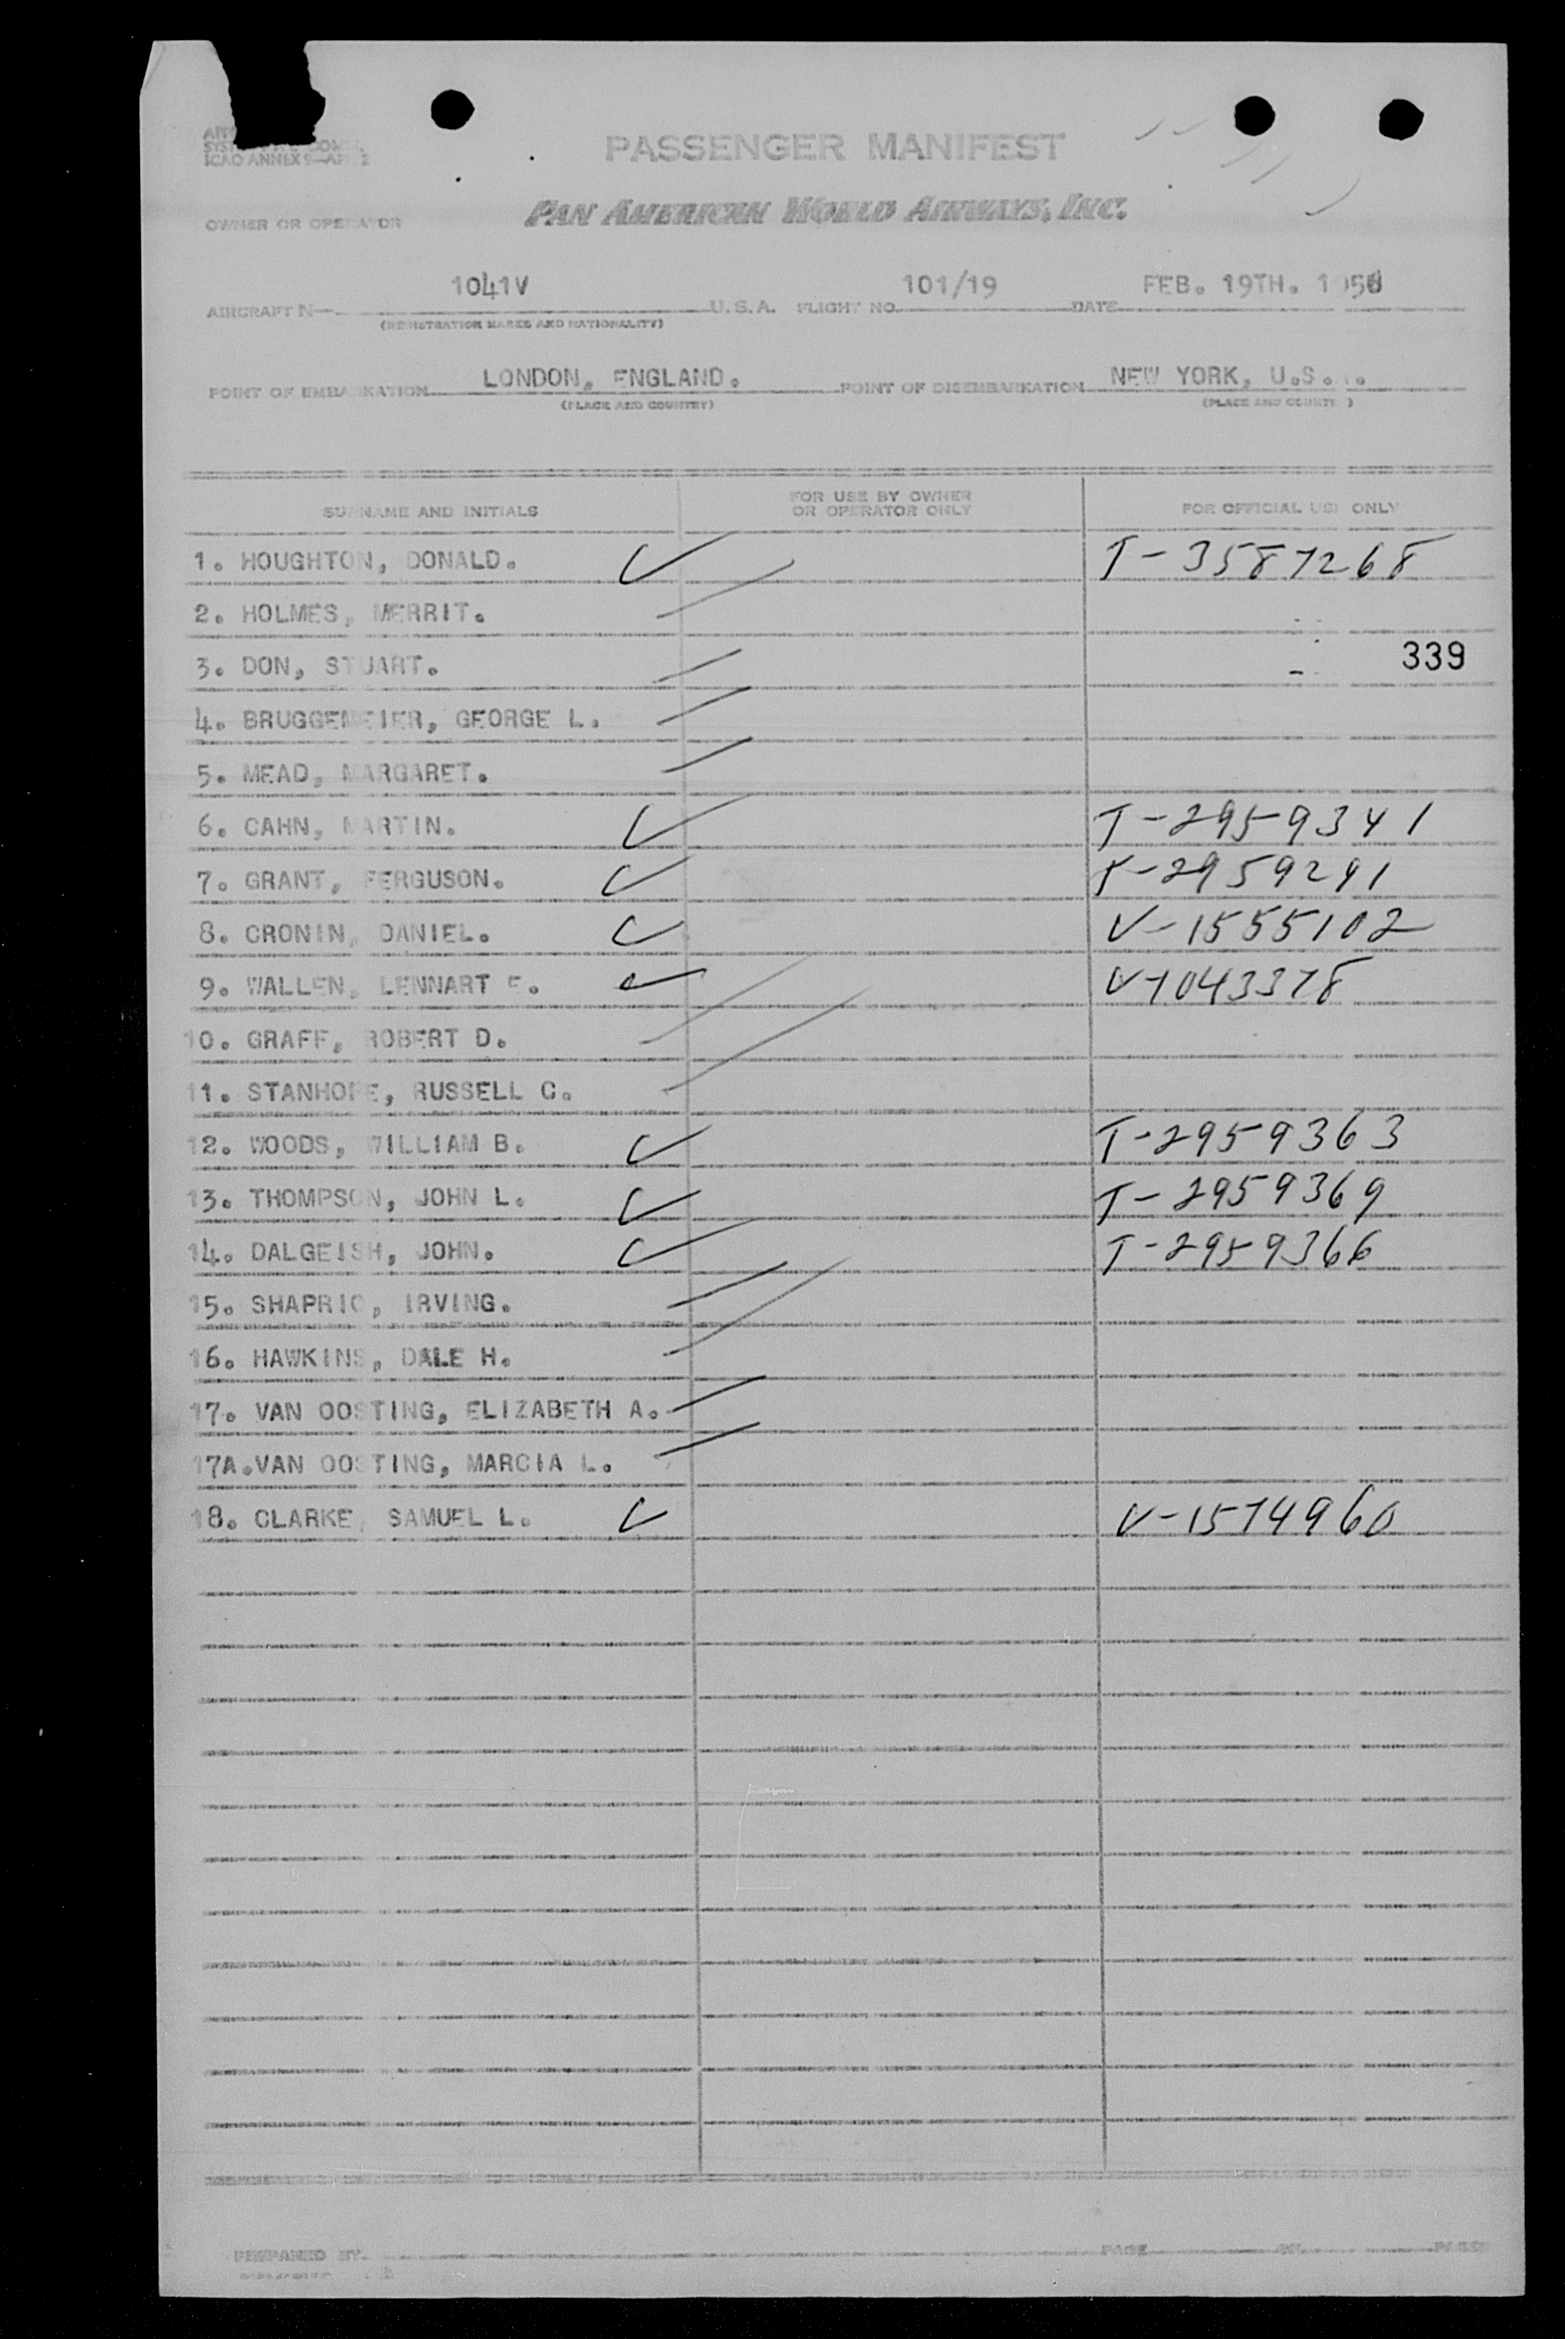 PASSENGER MANIFEST
ICAO ANNEX 9—
OWNER OR OPERATOR PAN AMERICAN WORLD AIRWAYS, INC.
AIRCRAFT N— 1041V U.S.A. FLIGHT NO. 101/19 DATE FEB. 19TH.
(REGISTRATION MARKS AND NATIONALITY)
POINT OF EMBARKATION LONDON, ENGLAND. POINT OF DISEMBARKATION NEW YORK, U.S.A.
(PLACE AND COUNTRY) (PLACE AND COUNTRY)
SURNAME AND INITIALS FOR USE BY OWNER OR OPERATOR ONLY FOR OFFICIAL USE ONLY
1. HOUGHTON, DONALD. T-3587268
2. HOLMES, MERRIT.
3. DON, STUART. 339
4. BRUGGEMEIER, GEORGE L.
5. MEAD, MARGARET.
6. CAHN, MARTIN. T-2959341
7. GRANT, FERGUSON. T-2959291
8. CRONIN, DANIEL. V-1555102
9. WALLEN, LENNART E. V-1043378
10. GRAFF, ROBERT D.
11. STANHOPE, RUSSELL C.
12. WOODS, WILLIAM B. T-2959363
13. THOMPSON, JOHN L. T-2959369
14. DALGEISH, JOHN. T-2959366
15. SHAPRIO, IRVING.
16. HAWKINS, DALE H.
17. VAN OOSTING, ELIZABETH A.
17A.VAN OOSTING, MARCIA L.
18. CLARKE, SAMUEL L. V-1574960
PREPARED BY PAGE OF PAGES